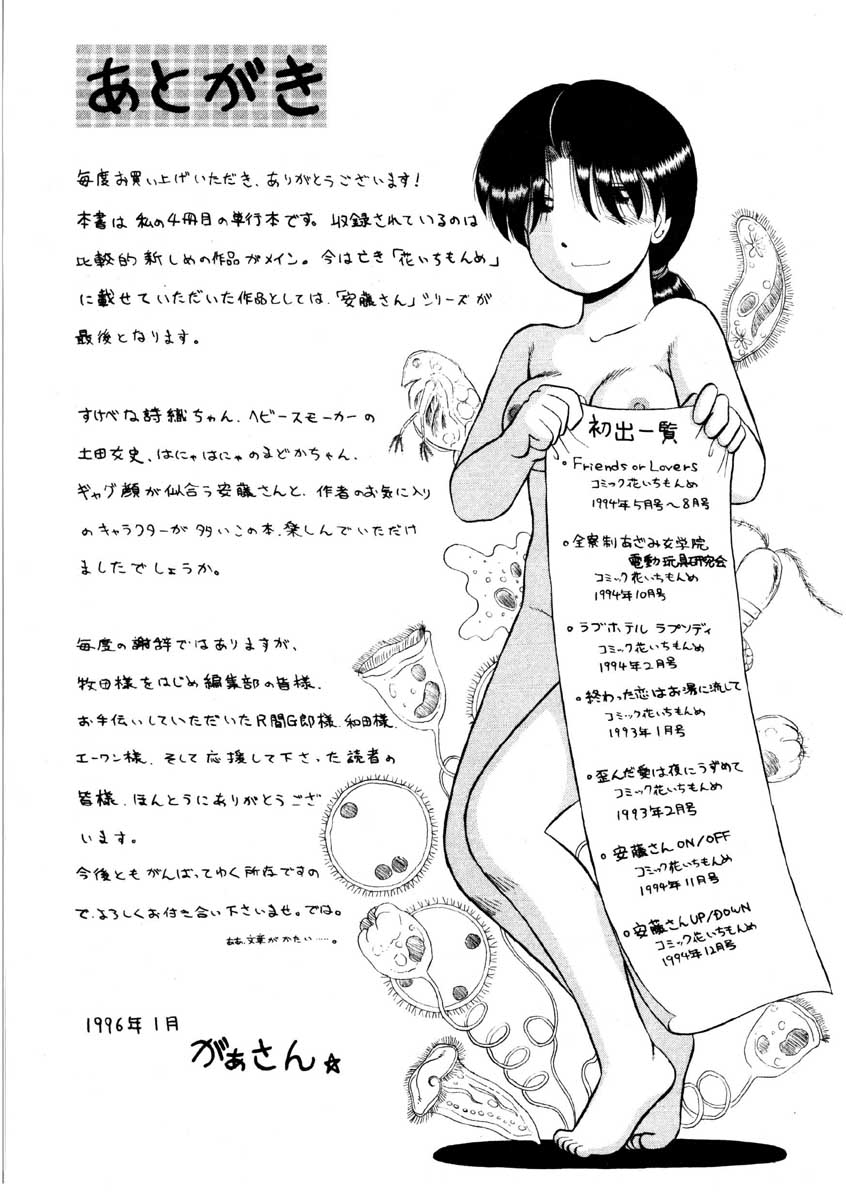 あとがき
毎度お買い上げいただき、ありがとうございます！
本書は私の4冊目の単行本です。収録されているのは
比較的新しめの作品がメイン。今は亡き「花いちもんめ」
に載せていただいた作品としては、「安藤さん」シリーズが
最後となります。
すけべな詩織ちゃん、ヘビースモーカーの
土田女史、はにゃはにゃのまどかちゃん、
ギャグ顔が似合う安藤さんと、作者のお気に入り
のキャラクターが多いこの本、楽しんでいただけ
ましたでしょうか。
毎度の謝辞ではありますが、
牧田様をはじめ編集部の皆様、
お手伝いしていただいたR間G郎様、和田様、
エーワン様、そして応援して下さった読者の
皆様、ほんとうにありがとうござ
います。
今後ともがんばってゆく所存ですの
で、よろしくお付き合い下さいませ。では。
ああ、文章がかたい……。
1996年1月
がぁさん☆
初出一覧
・Friends or Lovers
コミック花いちもんめ
1994年5月号〜8月号
・全寮制あざみ女学院
電動玩具研究会
コミック花いちもんめ
1994年10月号
・ラブホテル ラプソディ
コミック花いちもんめ
1994年2月号
・終わった恋はお湯に流して
コミック花いちもんめ
1993年1月号
・歪んだ愛は夜にうずめて
コミック花いちもんめ
1993年2月号
・安藤さんON/OFF
コミック花いちもんめ
1994年11月号
・安藤さんUP/DOWN
コミック花いちもんめ
1994年12月号